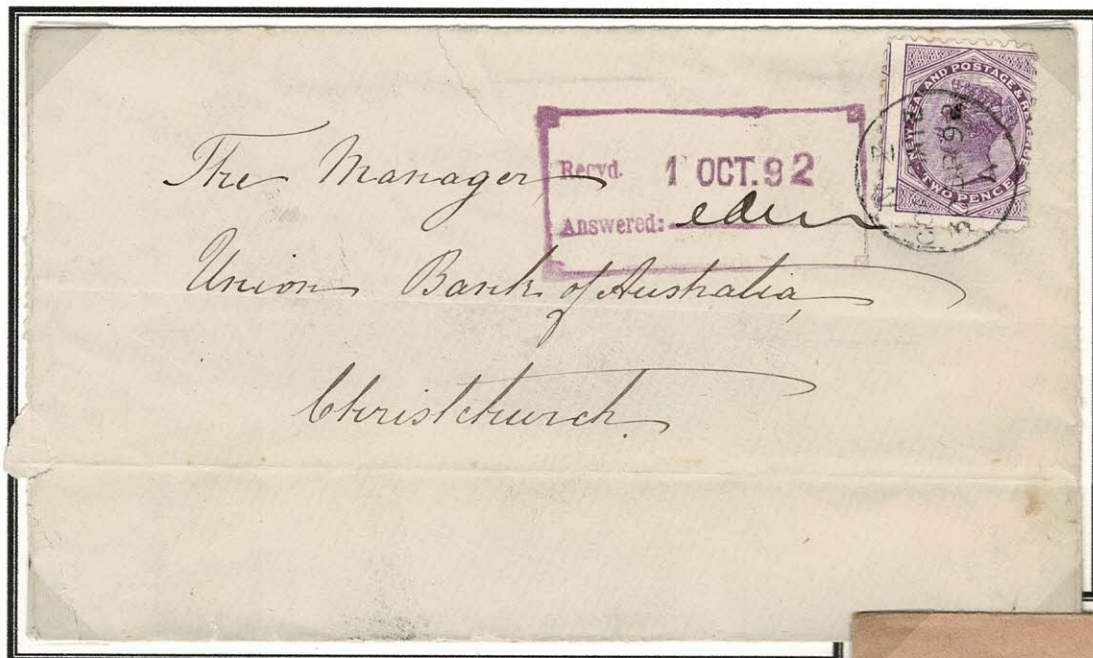 The Manager
Union Bank of Australia,
Christchurch.
Recvd. 1 OCT. 92
Answered:
NEW ZEALAND POSTAGE & REVENUE
TWO PENCE
N Z